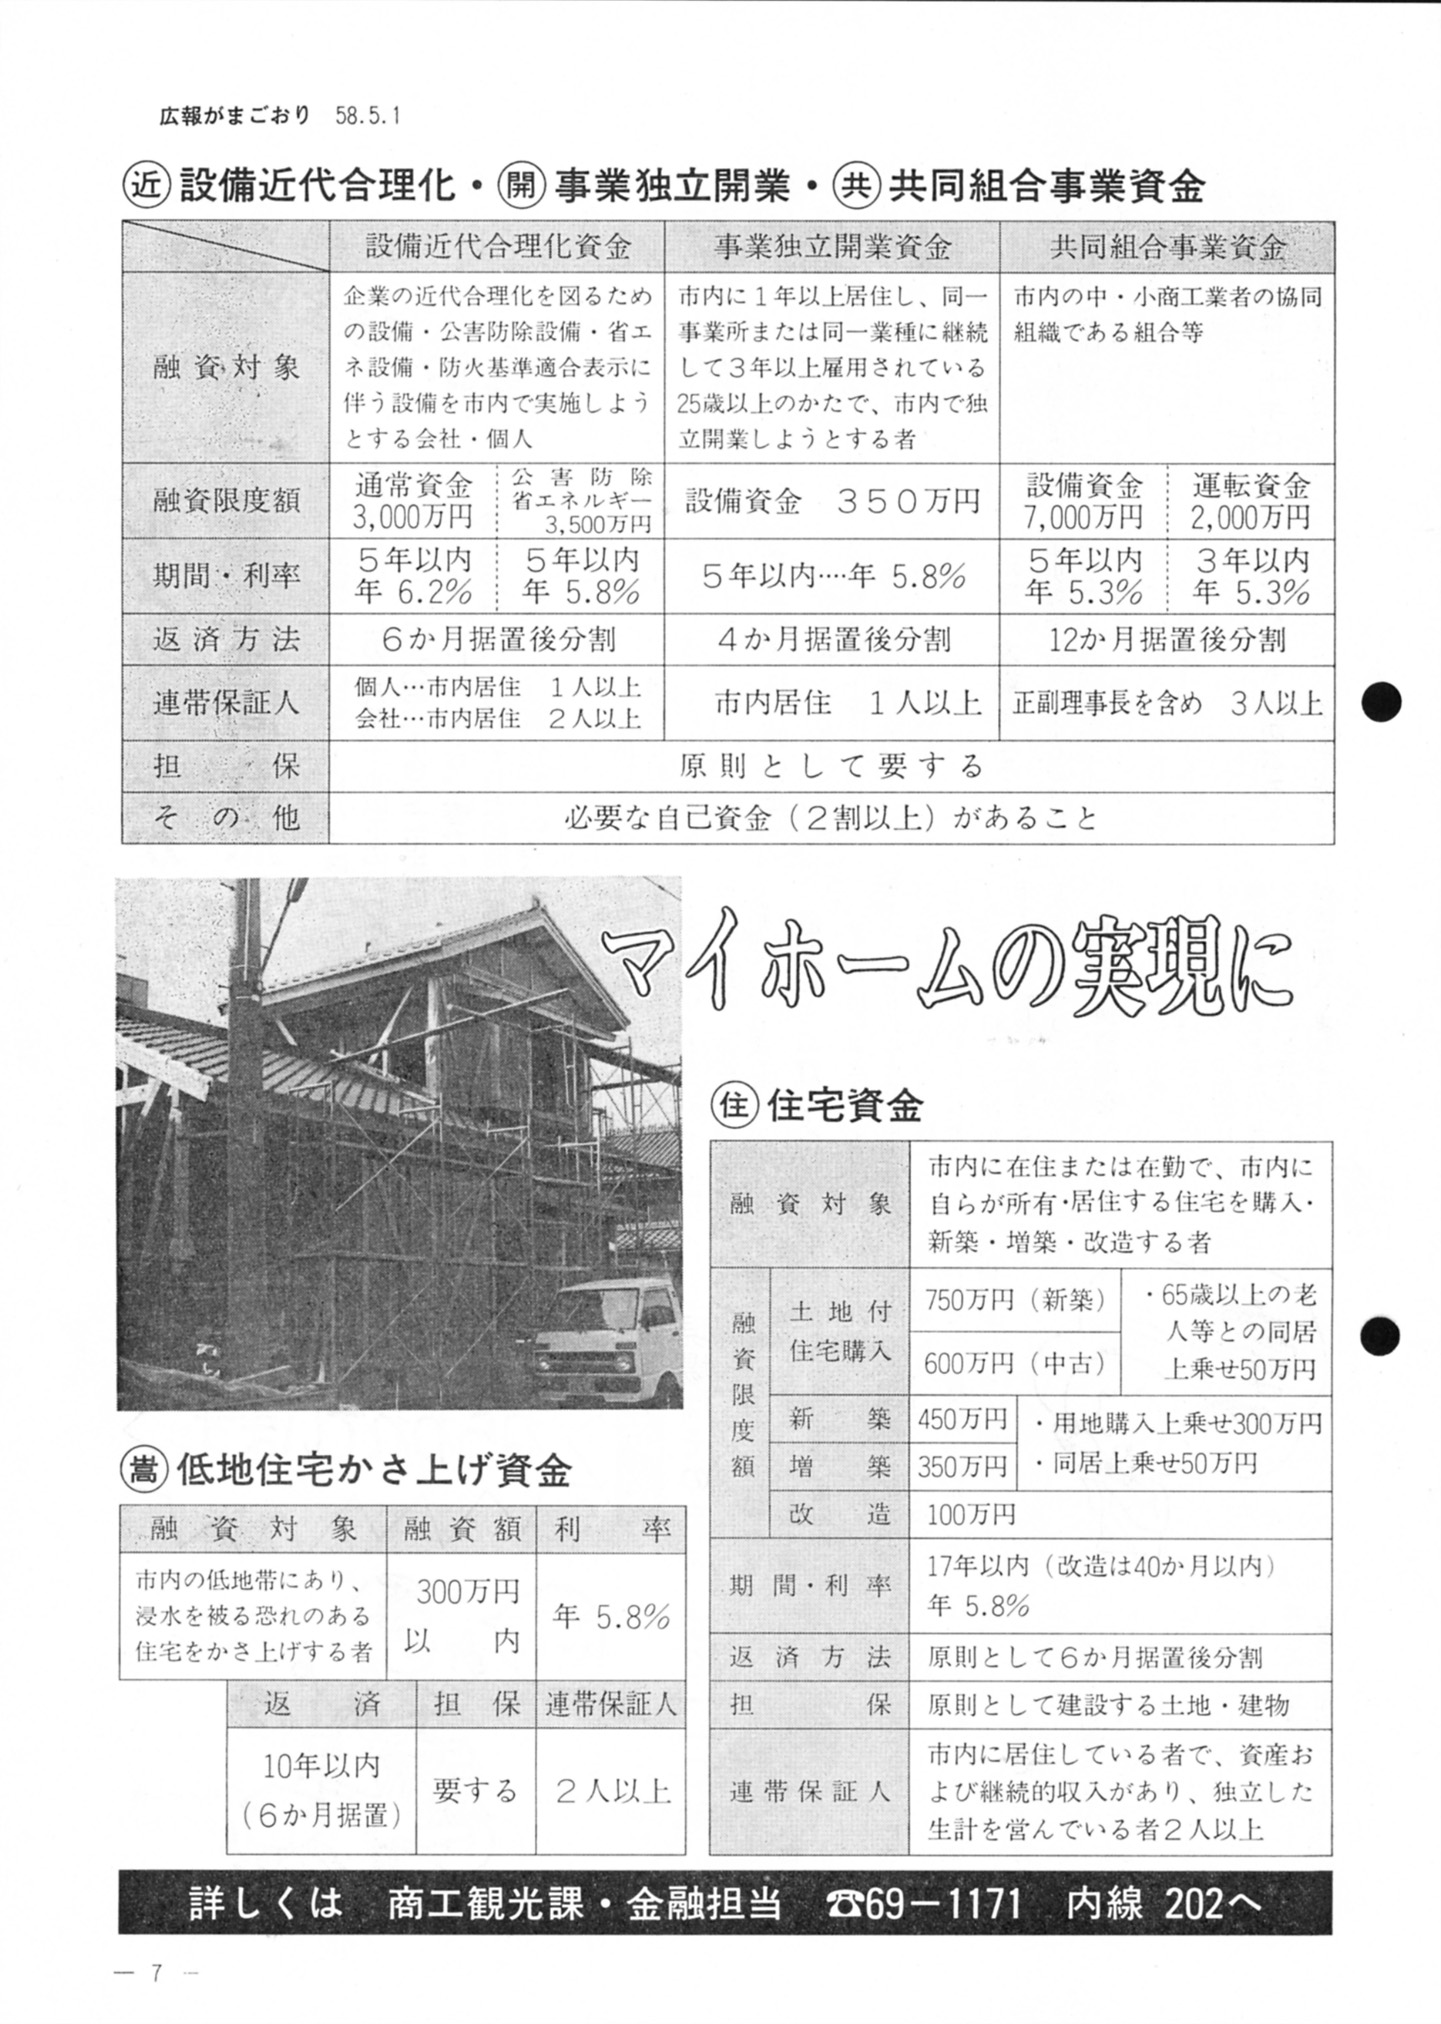 広報がまごおり 58.5.1
㊣近 設備近代合理化・開 事業独立開業・共 共同組合事業資金
設備近代合理化資金 事業独立開業資金 共同組合事業資金
融資対象
企業の近代合理化を図るため
の設備・公害防除設備・省エ
ネ設備・防火基準適合表示に
伴う設備を市内で実施しよう
とする会社・個人
市内に1年以上居住し、同一
事業所または同一業種に継続
して3年以上雇用されている
25歳以上のかたで、市内で独
立開業しようとする者
市内の中・小商工業者の協同
組織である組合等
融資限度額
通常資金
3,000万円
公害防除
省エネルギー
3,500万円
設備資金 350万円
設備資金
7,000万円
運転資金
2,000万円
期間・利率
5年以内
年 6.2%
5年以内
年 5.8%
5年以内…年 5.8%
5年以内
年 5.3%
3年以内
年 5.3%
返済方法 6か月据置後分割 4か月据置後分割 12か月据置後分割
連帯保証人
個人…市内居住 1人以上
会社…市内居住 2人以上
市内居住 1人以上
正副理事長を含め 3人以上
担保 原則として要する
その他 必要な自己資金（2割以上）があること
マイホームの実現に
住 住宅資金
融資対象
市内に在住または在勤で、市内に
自らが所有・居住する住宅を購入・
新築・増築・改造する者
融資限度額
土地付
住宅購入
750万円（新築）
600万円（中古）
・65歳以上の老
人等との同居
上乗せ50万円
新築 450万円
増築 350万円
・用地購入上乗せ300万円
・同居上乗せ50万円
改造 100万円
期間・利率
17年以内（改造は40か月以内）
年 5.8%
返済方法 原則として6か月据置後分割
担保 原則として建設する土地・建物
連帯保証人
市内に居住している者で、資産お
よび継続的収入があり、独立した
生計を営んでいる者2人以上
嵩 低地住宅かさ上げ資金
融資対象 融資額 利率
市内の低地帯にあり、
浸水を被る恐れのある
住宅をかさ上げする者
300万円
以内
年 5.8%
返済 担保 連帯保証人
10年以内
（6か月据置）
要する
2人以上
詳しくは 商工観光課・金融担当 ☎69－1171 内線 202へ
― 7 ―